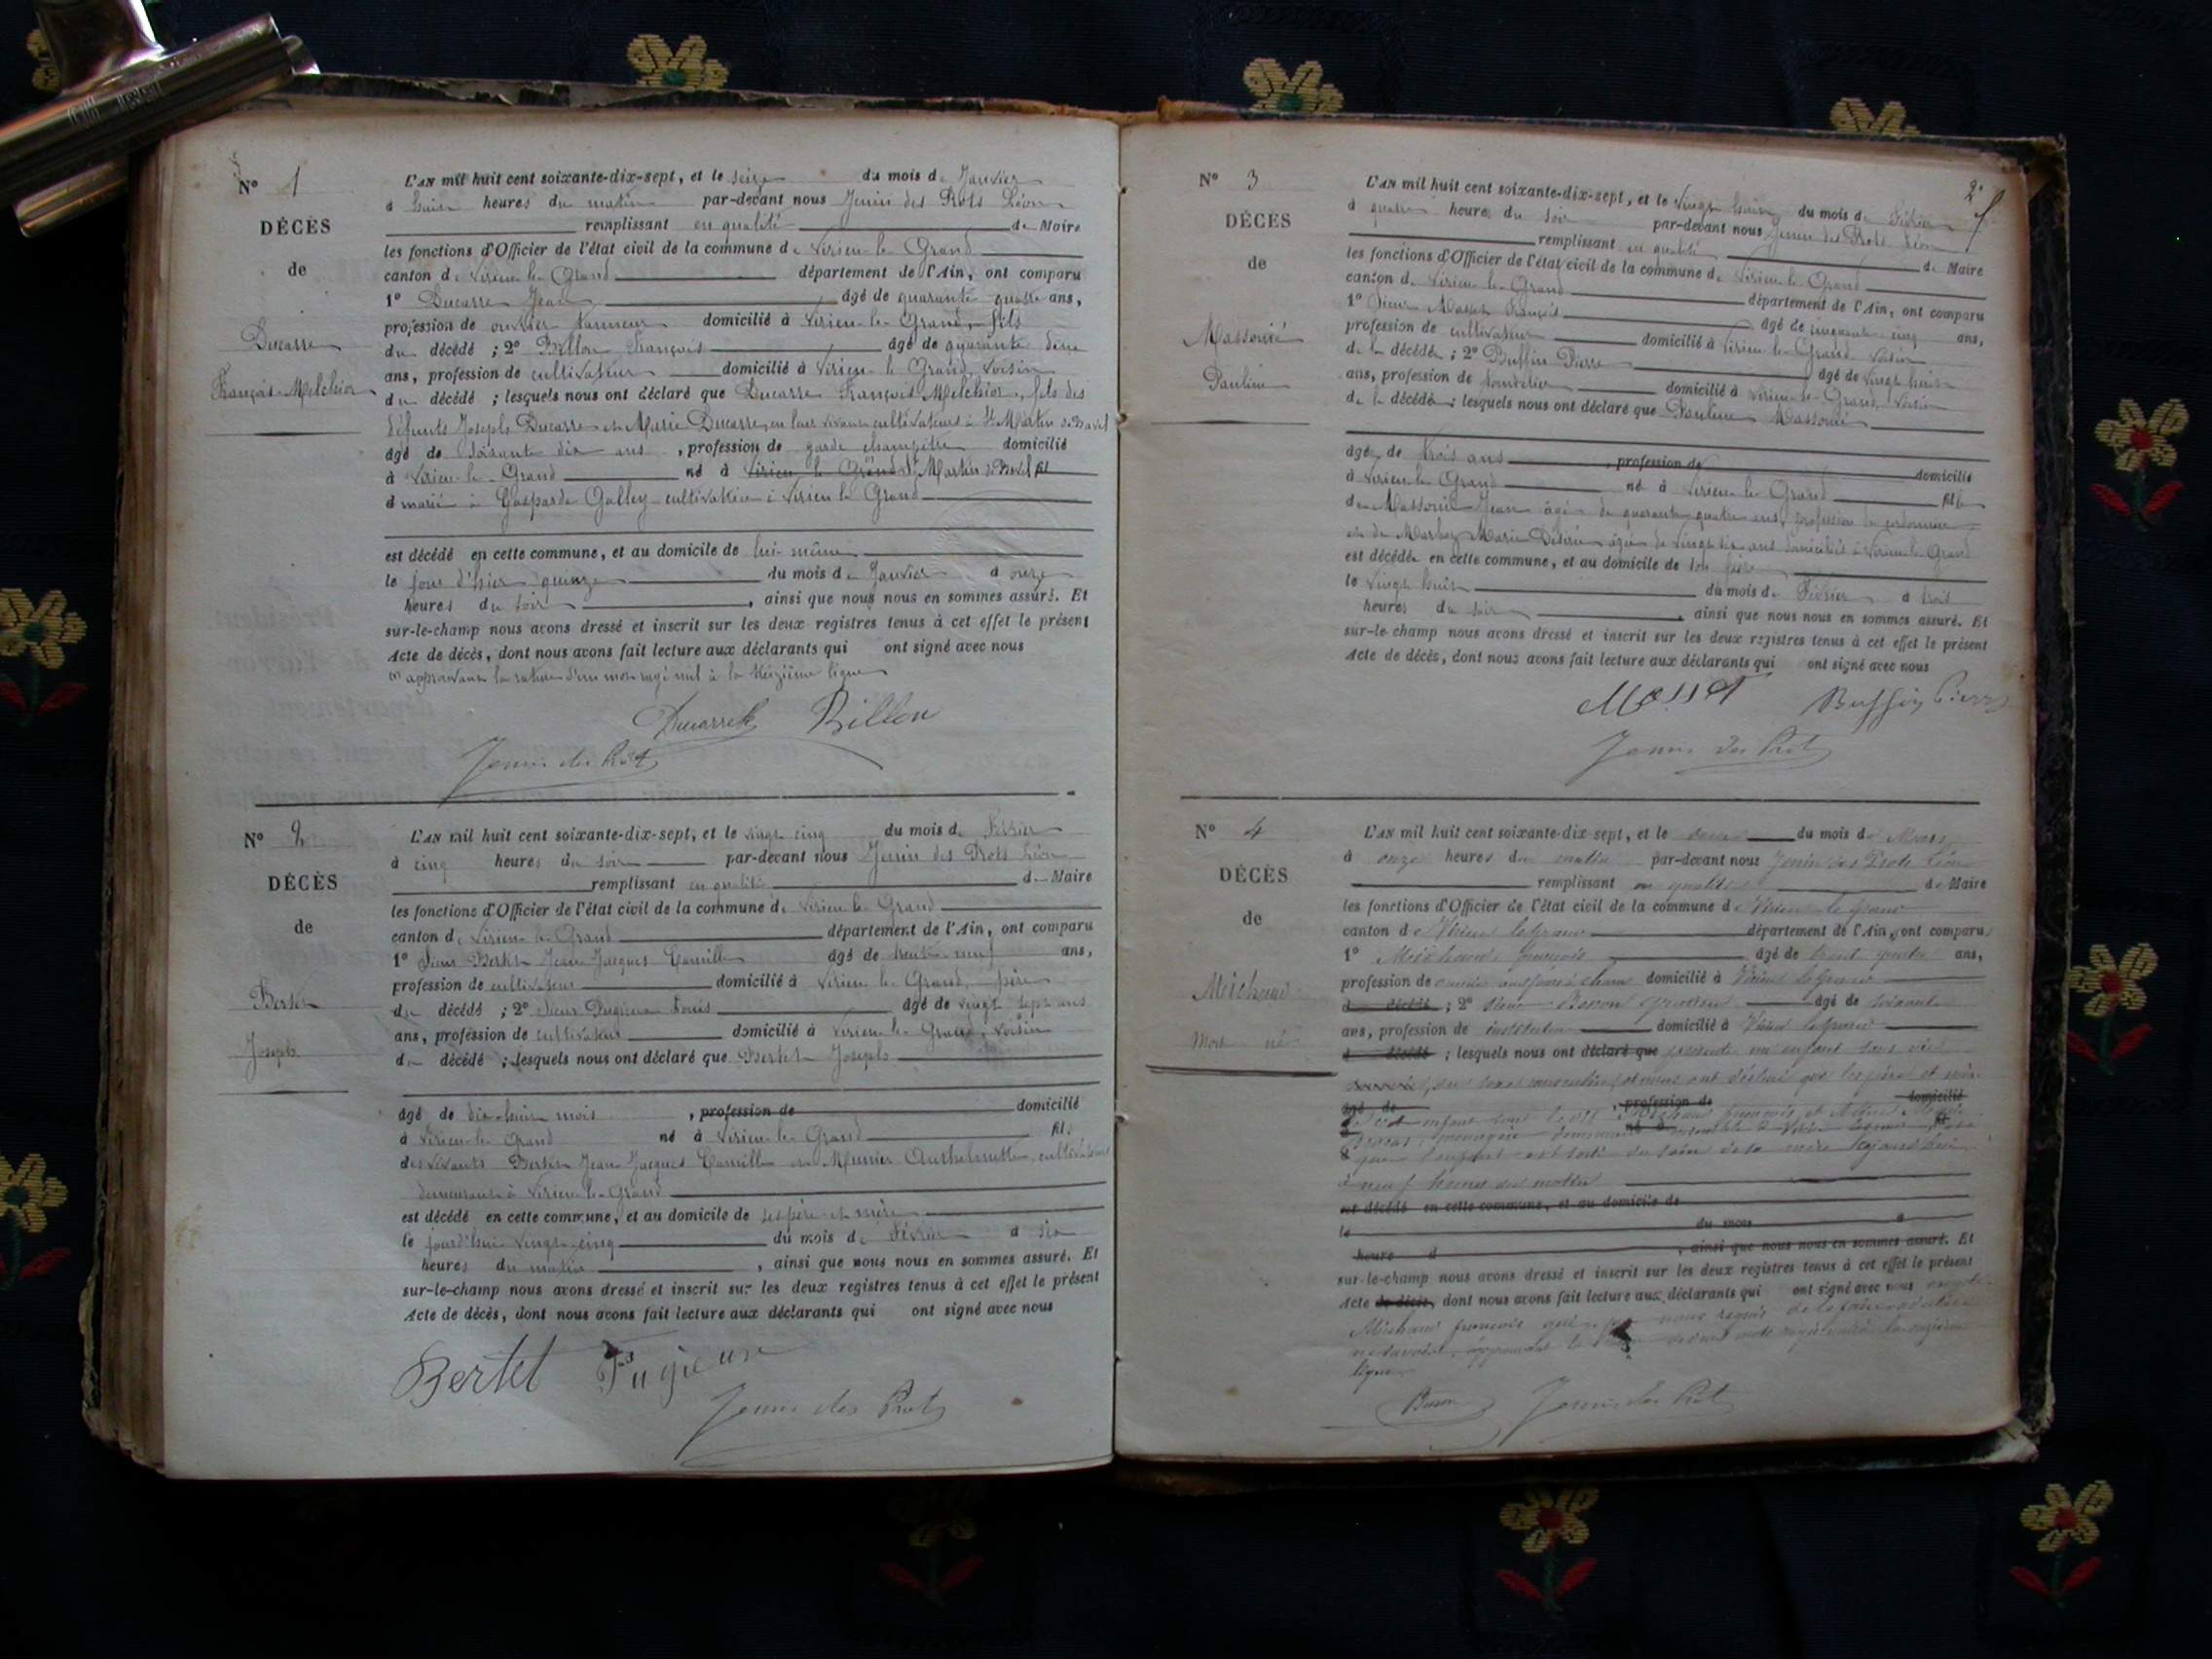 N° 1
DÉCÈS
de
Ducarre
François-Melchior
L'AN mil huit cent soixante-dix-sept, et le seize du mois de Janvier
à huit heures du matin par-devant nous Jenin des Prots Léon
remplissant en qualité de Maire
les fonctions d'Officier de l'état civil de la commune de Virieu-le-Grand
canton de Virieu-le-Grand département de l'Ain, ont comparu
1° Ducarre Jean âgé de quarante quatre ans,
profession de ouvrier tanneur domicilié à Virieu-le-Grand, fils
du décédé ; 2° Billon François âgé de quarante deux
ans, profession de cultivateur domicilié à Virieu-le Grand, voisin
du décédé ; lesquels nous ont déclaré que Ducarre François Melchior, fils des
défunts Joseph Ducarre et Marie Ducarre, en leur vivant cultivateurs à St Martin de Bavel
âgé de soixante dix ans , profession de garde champêtre domicilié
à Virieu-le-Grand né à Virieu le Grand St Martin de Bavel fil
d marié à Gasparde Galley cultivatrice à Virieu le Grand
est décédé en cette commune, et au domicile de lui-même
le jour d'hier quinze du mois de Janvier à onze
heures du soir , ainsi que nous nous en sommes assuré. Et
sur-le-champ nous avons dressé et inscrit sur les deux registres tenus à cet effet le présent
Acte de décès, dont nous avons fait lecture aux déclarants qui ont signé avec nous
en approuvant la rature d'un mot rayé nul à la treizième ligne
Ducarre Billon
Jenin des Prots
N° 2
DÉCÈS
de
Bertet
Joseph
L'AN mil huit cent soixante-dix-sept, et le vingt cinq du mois de Février
à cinq heures du soir par-devant nous Jenin des Prots Léon
remplissant en qualité de Maire
les fonctions d'Officier de l'état civil de la commune de Virieu-le-Grand
canton de Virieu-le-Grand département de l'Ain, ont comparu
1° Sieur Bertet Jean Jacques Camille âgé de trente-neuf ans,
profession de cultivateur domicilié à Virieu le-Grand, père
du décédé ; 2° Sieur Fugieux Louis âgé de vingt sept ans
ans, profession de cultivateur domicilié à Virieu-le-Grand, voisin
du décédé ; lesquels nous ont déclaré que Bertet Joseph
âgé de dix-huit mois , profession de domicilié
à Virieu-le-Grand né à Virieu-le-Grand fils
des vivants Bertet Jean Jacques Camille et Meunier Anthelmette, cultivateurs
demeurant à Virieu-le-Grand
est décédé en cette commune, et au domicile de ses père et mère
le jourd'hui vingt-cinq du mois de Février à six
heures du matin , ainsi que nous nous en sommes assuré. Et
sur-le-champ nous avons dressé et inscrit sur les deux registres tenus à cet effet le présent
Acte de décès, dont nous avons fait lecture aux déclarants qui ont signé avec nous
Bertet Fugieux
Jenin des Prots
2e
N° 3
DÉCÈS
de
Massonié
Pauline
L'AN mil huit cent soixante-dix-sept, et le vingt huit du mois de Février
à quatre heures du soir par-devant nous Jenin des Prots Léon
remplissant en qualité de Maire
les fonctions d'Officier de l'état civil de la commune de Virieu-le-Grand
canton de Virieu-le-Grand département de l'Ain, ont comparu
1° Sieur Masset François âgé de cinquante cinq ans,
profession de cultivateur domicilié à Virieu-le-Grand voisin
de la décédée ; 2° Buffin Pierre âgé de vingt huit
ans, profession de domicilié à Virieu-le-Grand, voisin
de la décédée ; lesquels nous ont déclaré que Pauline Massonié
âgée de trois ans , profession de domicilié
à Virieu-le Grand né à Virieu-le-Grand fille
de Massonié Jean âgé de quarante quatre ans, profession de cordonnier
et de Marie Désirée âgée de vingt six ans domiciliés à Virieu-le-Grand
est décédée en cette commune, et au domicile de son père
le vingt huit du mois de Février à trois
heures du soir , ainsi que nous nous en sommes assuré. Et
sur-le-champ nous avons dressé et inscrit sur les deux registres tenus à cet effet le présent
Acte de décès, dont nous avons fait lecture aux déclarants qui ont signé avec nous
Masset Buffin Pierre
Jenin des Prots
N° 4
DÉCÈS
de
Michaud
Mort né
L'AN mil huit cent soixante-dix-sept, et le du mois de Mars
à onze heures du matin par-devant nous Jenin des Prots Léon
remplissant en qualité de Maire
les fonctions d'Officier de l'état civil de la commune de Virieu-le-Grand
canton de Virieu le Grand département de l'Ain, ont comparu
1° Michaud françois âgé de trente quatre ans,
profession de domicilié à Virieu le Grand
d décédé ; 2° Sieur âgé de soixante
ans, profession de instituteur domicilié à Virieu le Grand
d décédé ; lesquels nous ont déclaré que présenté un enfant sans vie
du sexe masculin et nous ont déclaré que les père et mère
âgé de , profession de domicilié
enfant sont Michaud françois et
que l'enfant est sorti du sein de sa mère aujourd'hui
à neuf heures du matin
est décédé en cette commune, et au domicile de
le du mois à
heure d , ainsi que nous nous en sommes assuré. Et
sur-le-champ nous avons dressé et inscrit sur les deux registres tenus à cet effet le présent
Acte de décès, dont nous avons fait lecture aux déclarants qui ont signé avec nous excepté
Michaud françois requis de le faire a déclaré
ne savoir, approuvant la onzième
ligne
Jenin des Prots